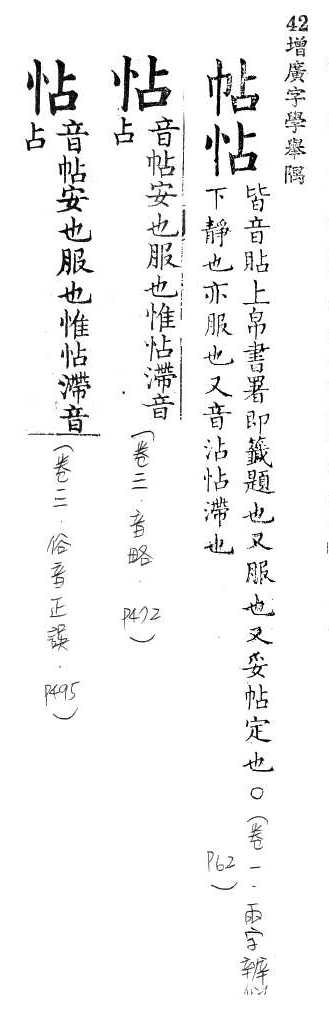 42增廣字學舉隅
帖怗
皆音貼上帛書署即籤題也又服也又妥帖定也〇(卷一·兩字辨似
下靜也亦服也又音沾怗滯也
P62)
怗
音帖安也服也惟怗滯音
占
(卷三·音略·P472)
怗
音帖安也服也惟怗滯音
占
(卷三·俗音正誤·P495)